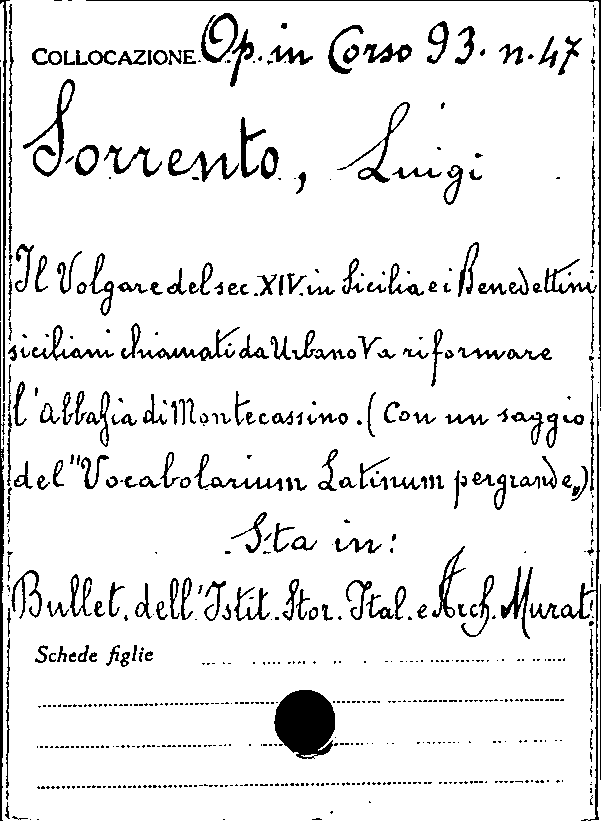 COLLOCAZIONE Op. in Corso 93. n. 47
Sorrento, Luigi
Il Volgare del sec. XIV. in Sicilia e i Benedettini
siciliani chiamati da Urbano V a riformare
l'abbazia di Montecassino. (Con un saggio
del "Vocabolarium Latinum pergrande")
Sta in:
Bullet. dell'Istit. Stor. Ital. e Arch. Murat.
Schede figlie